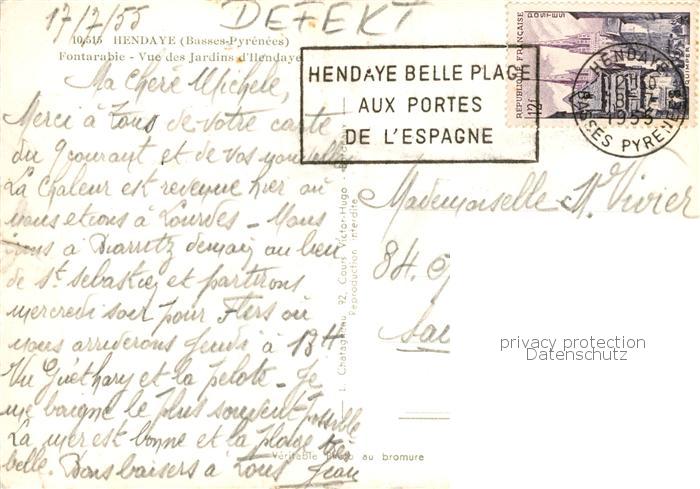 17/7/55
DEFEKT
10.515 HENDAYE (Basses-Pyrénées)
Fontarabie - Vue des Jardins d'Hendaye
Ma Chère Michèle,
Merci à tous de votre carte
du 9 courant et de vos nouvelles
La chaleur est revenue hier où
nous étions à Lourdes - Nous
à Biarritz demain au lieu
de St Sebastien et partirons
mercredi soir pour Flers où
nous arriverons jeudi à 18H
Vu Guéthary et la pelote - Je
me baigne le plus souvent possible
La mer est bonne et la plage très
belle. Bons baisers à tous Jean
HENDAYE BELLE PLAGE
AUX PORTES
DE L'ESPAGNE
RÉPUBLIQUE FRANÇAISE
POSTES
QUIMPER
12F
HENDAYE
1955
BASSES PYRENEES
Mademoiselle M. Vivier
84.
L. Chatagneau, 92, Cours Victor-Hugo
Reproduction interdite
Véritable photo au bromure
privacy protection
Datenschutz